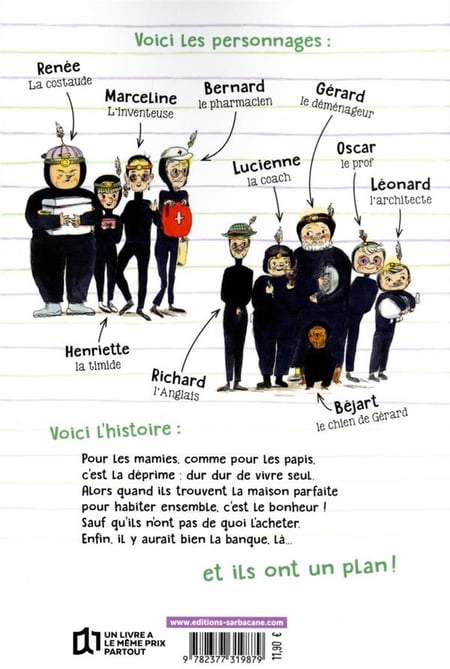 Voici les personnages :
Renée
La costaude
Marceline
L'inventeuse
Bernard
le pharmacien
Gérard
le déménageur
Lucienne
la coach
Oscar
le prof
Léonard
l'architecte
Henriette
la timide
Richard
l'Anglais
Béjart
le chien de Gérard
Voici l'histoire :
Pour les mamies, comme pour les papis,
c'est la déprime : dur dur de vivre seul.
Alors quand ils trouvent la maison parfaite
pour habiter ensemble, c'est le bonheur !
Sauf qu'ils n'ont pas de quoi l'acheter.
Enfin, il y aurait bien la banque, là...
et ils ont un plan !
www.editions-sarbacane.com
UN LIVRE A
LE MÊME PRIX
PARTOUT
9 782377 319879
11,90 €